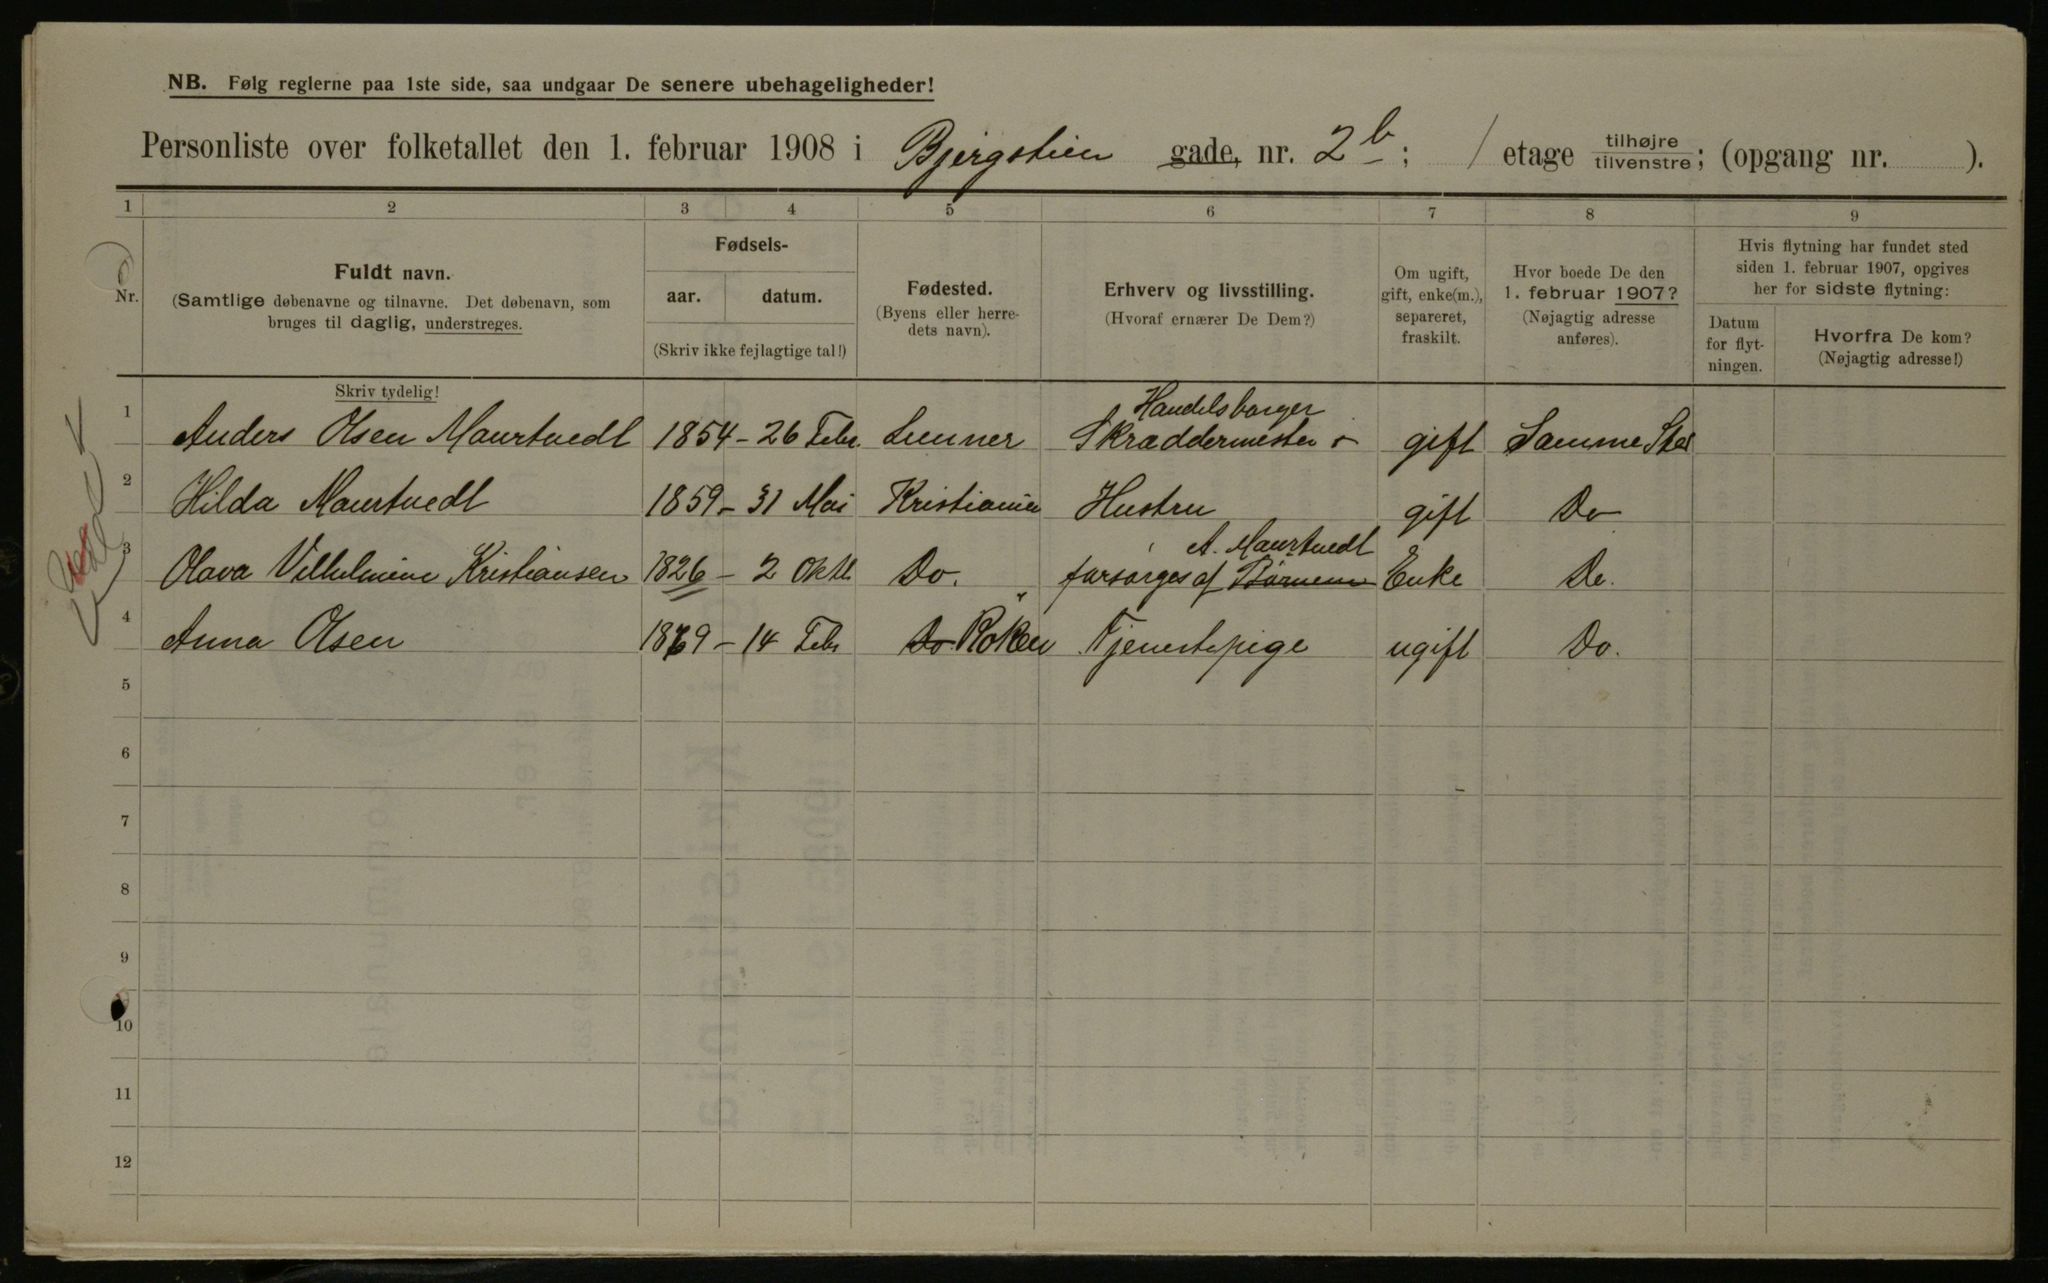 NB. Følg reglerne paa 1ste side, saa undgaar De senere ubehageligheder!
Personliste over folketallet den 1. februar 1908 i Bjergstien gade, nr. 2b; / etage tilhøjre tilvenstre; (opgang nr. ).
1 2 3 4 5 6 7 8 9
Nr.
Fuldt navn.
(Samtlige døbenavne og tilnavne. Det døbenavn, som
bruges til daglig, understreges.
Fødsels-
aar. datum.
(Skriv ikke fejlagtige tal!)
Fødested.
(Byens eller herre-
dets navn).
Erhverv og livsstilling.
(Hvoraf ernærer De Dem?)
Om ugift,
gift, enke(m.),
separeret,
fraskilt.
Hvor boede De den
1. februar 1907?
(Nøjagtig adresse
anføres).
Hvis flytning har fundet sted
siden 1. februar 1907, opgives
her for sidste flytning:
Datum
for flyt-
ningen.
Hvorfra De kom?
(Nøjagtig adresse!)
Skriv tydelig!
Handelsborger
1 Anders Olsen Maurtvedt 1854 - 26 Febr. Lunner Skræddermester gift Samme Sted
2 Hilda Maurtvedt 1859 - 31 Mai Kristiania Hustru gift Do
A. Maurtvedt
3 Olava Vilhelmine Kristiansen 1826 - 2 Oktb Do. forsørges af Børnene Enke Do.
4 Anna Olsen 1879 - 14 Febr Do Røken Tjenestepige ugift Do.
5
6
7
8
9
10
11
12